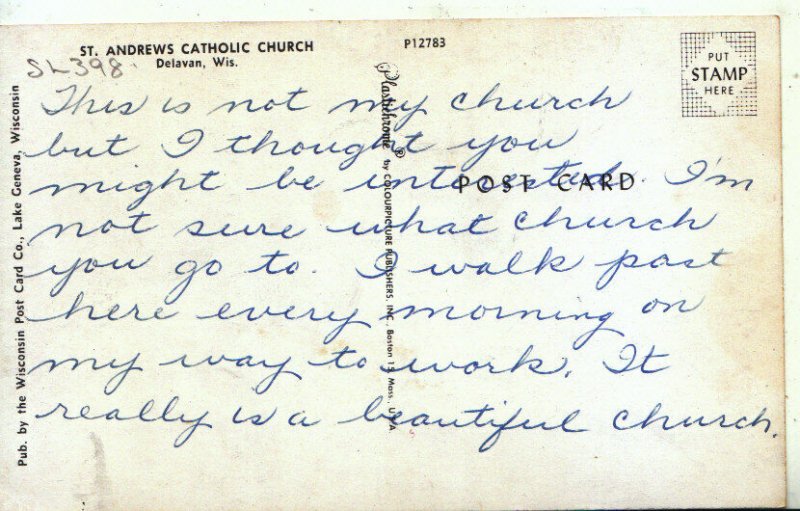 ST. ANDREWS CATHOLIC CHURCH
Delavan, Wis.
P12783
PUT
STAMP
HERE
SL398
This is not my church
but I thought you
might be intrested. I'm
not sure what church
you go to. I walk past
here every morning on
my way to work. It
really is a beautiful church.
POST CARD
Plastichrome ® by COLOURPICTURE PUBLISHERS, INC., Boston 15, Mass., U.S.A.
Pub. by the Wisconsin Post Card Co., Lake Geneva, Wisconsin